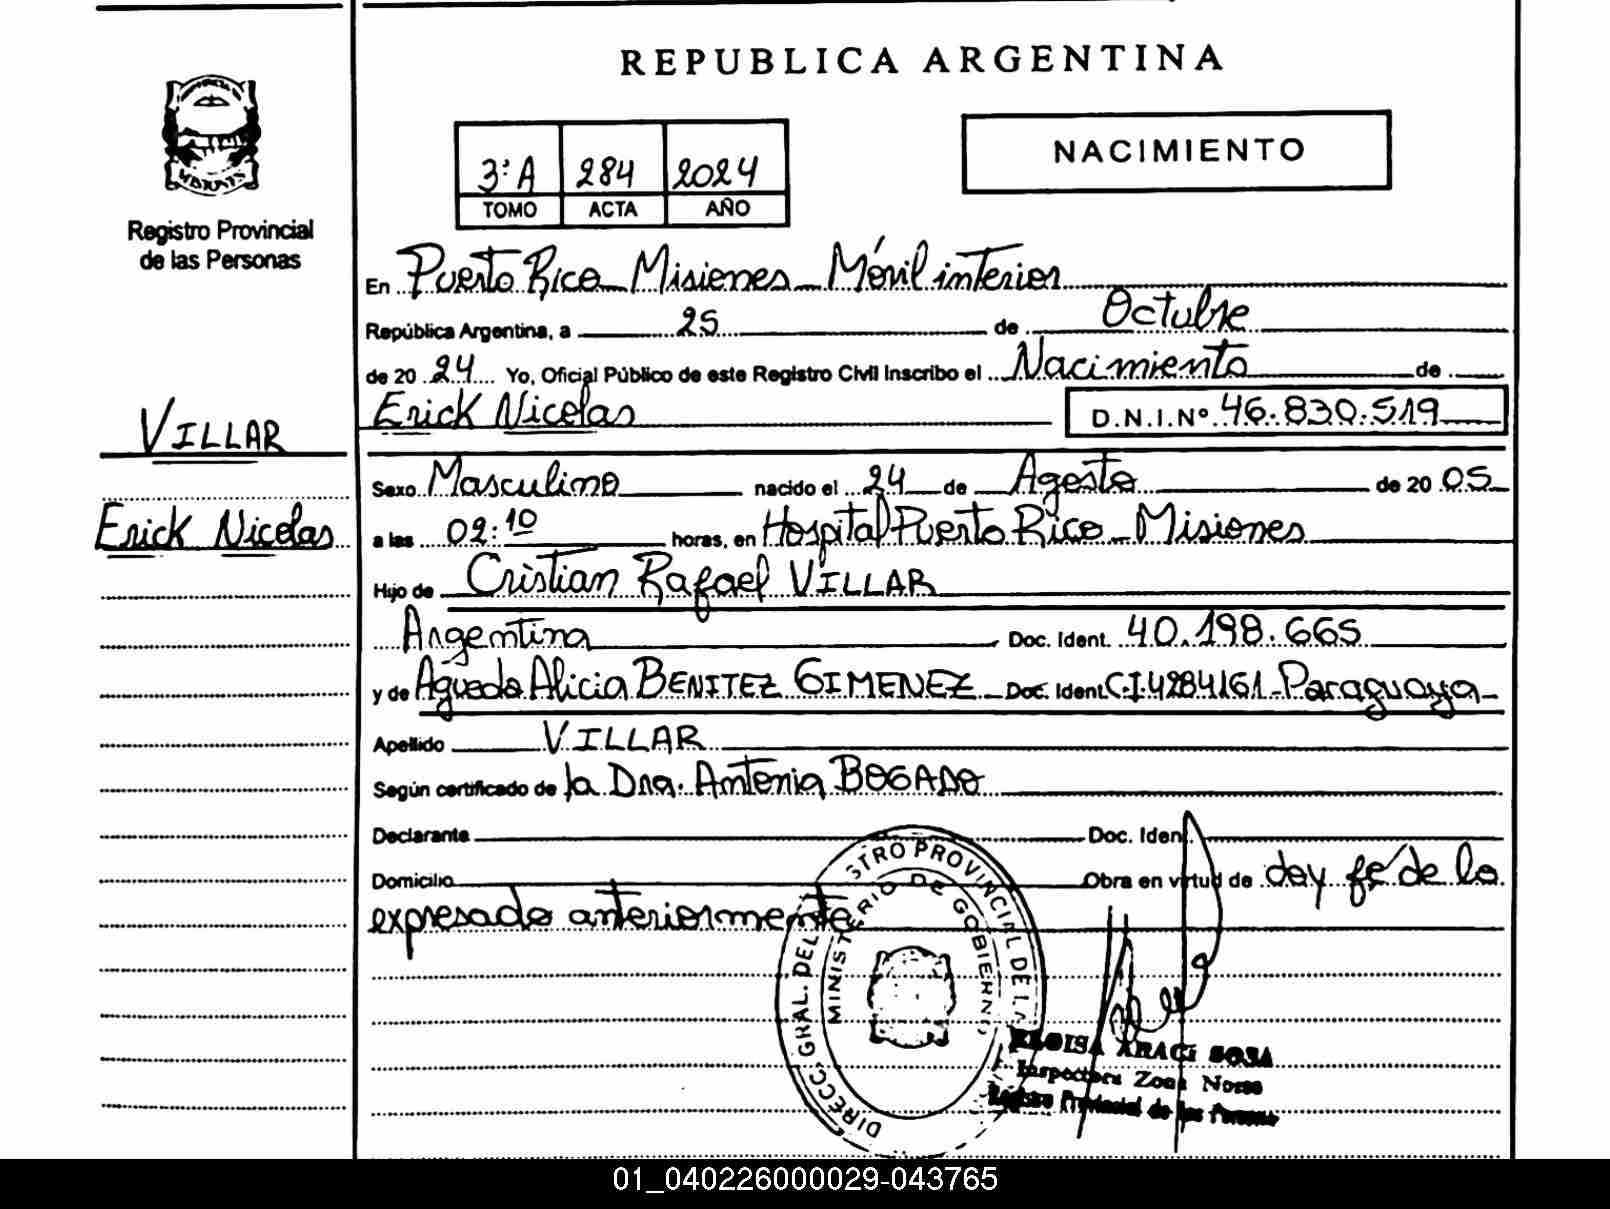 REPUBLICA ARGENTINA
NACIMIENTO
3ªA 284 2024
TOMO ACTA AÑO
MISIONES
Registro Provincial
de las Personas
En Puerto Rico - Misiones - Móvil interior
República Argentina, a 25 de Octubre
de 20 24 Yo, Oficial Público de este Registro Civil Inscribo el Nacimiento de
Erick Nicolas D.N.I.Nº 46.830.519
VILLAR
Sexo Masculino nacido el 24 de Agosto de 20 05
Erick Nicolas
a las 02:10 horas, en Hospital Puerto Rico - Misiones
Hijo de Cristian Rafael VILLAR
Argentina Doc. Ident. 40.198.665
y de Agueda Alicia BENITEZ GIMENEZ - Doc. Ident. C.I.4284161 - Paraguaya -
Apellido VILLAR
Según certificado de la Dra. Antonia BOGADO
Declarante Doc. Ident.
Domicilio Obra en virtud de doy fé de lo
expresado anteriormente
DIRECC. GRAL. DEL STRO PROVINCIAL DE LA
MINISTERIO DE GOBIERNO
ELOISA ARACI SOSA
Inspectora Zona Norte
Registro Provincial de las Personas
01_040226000029-043765